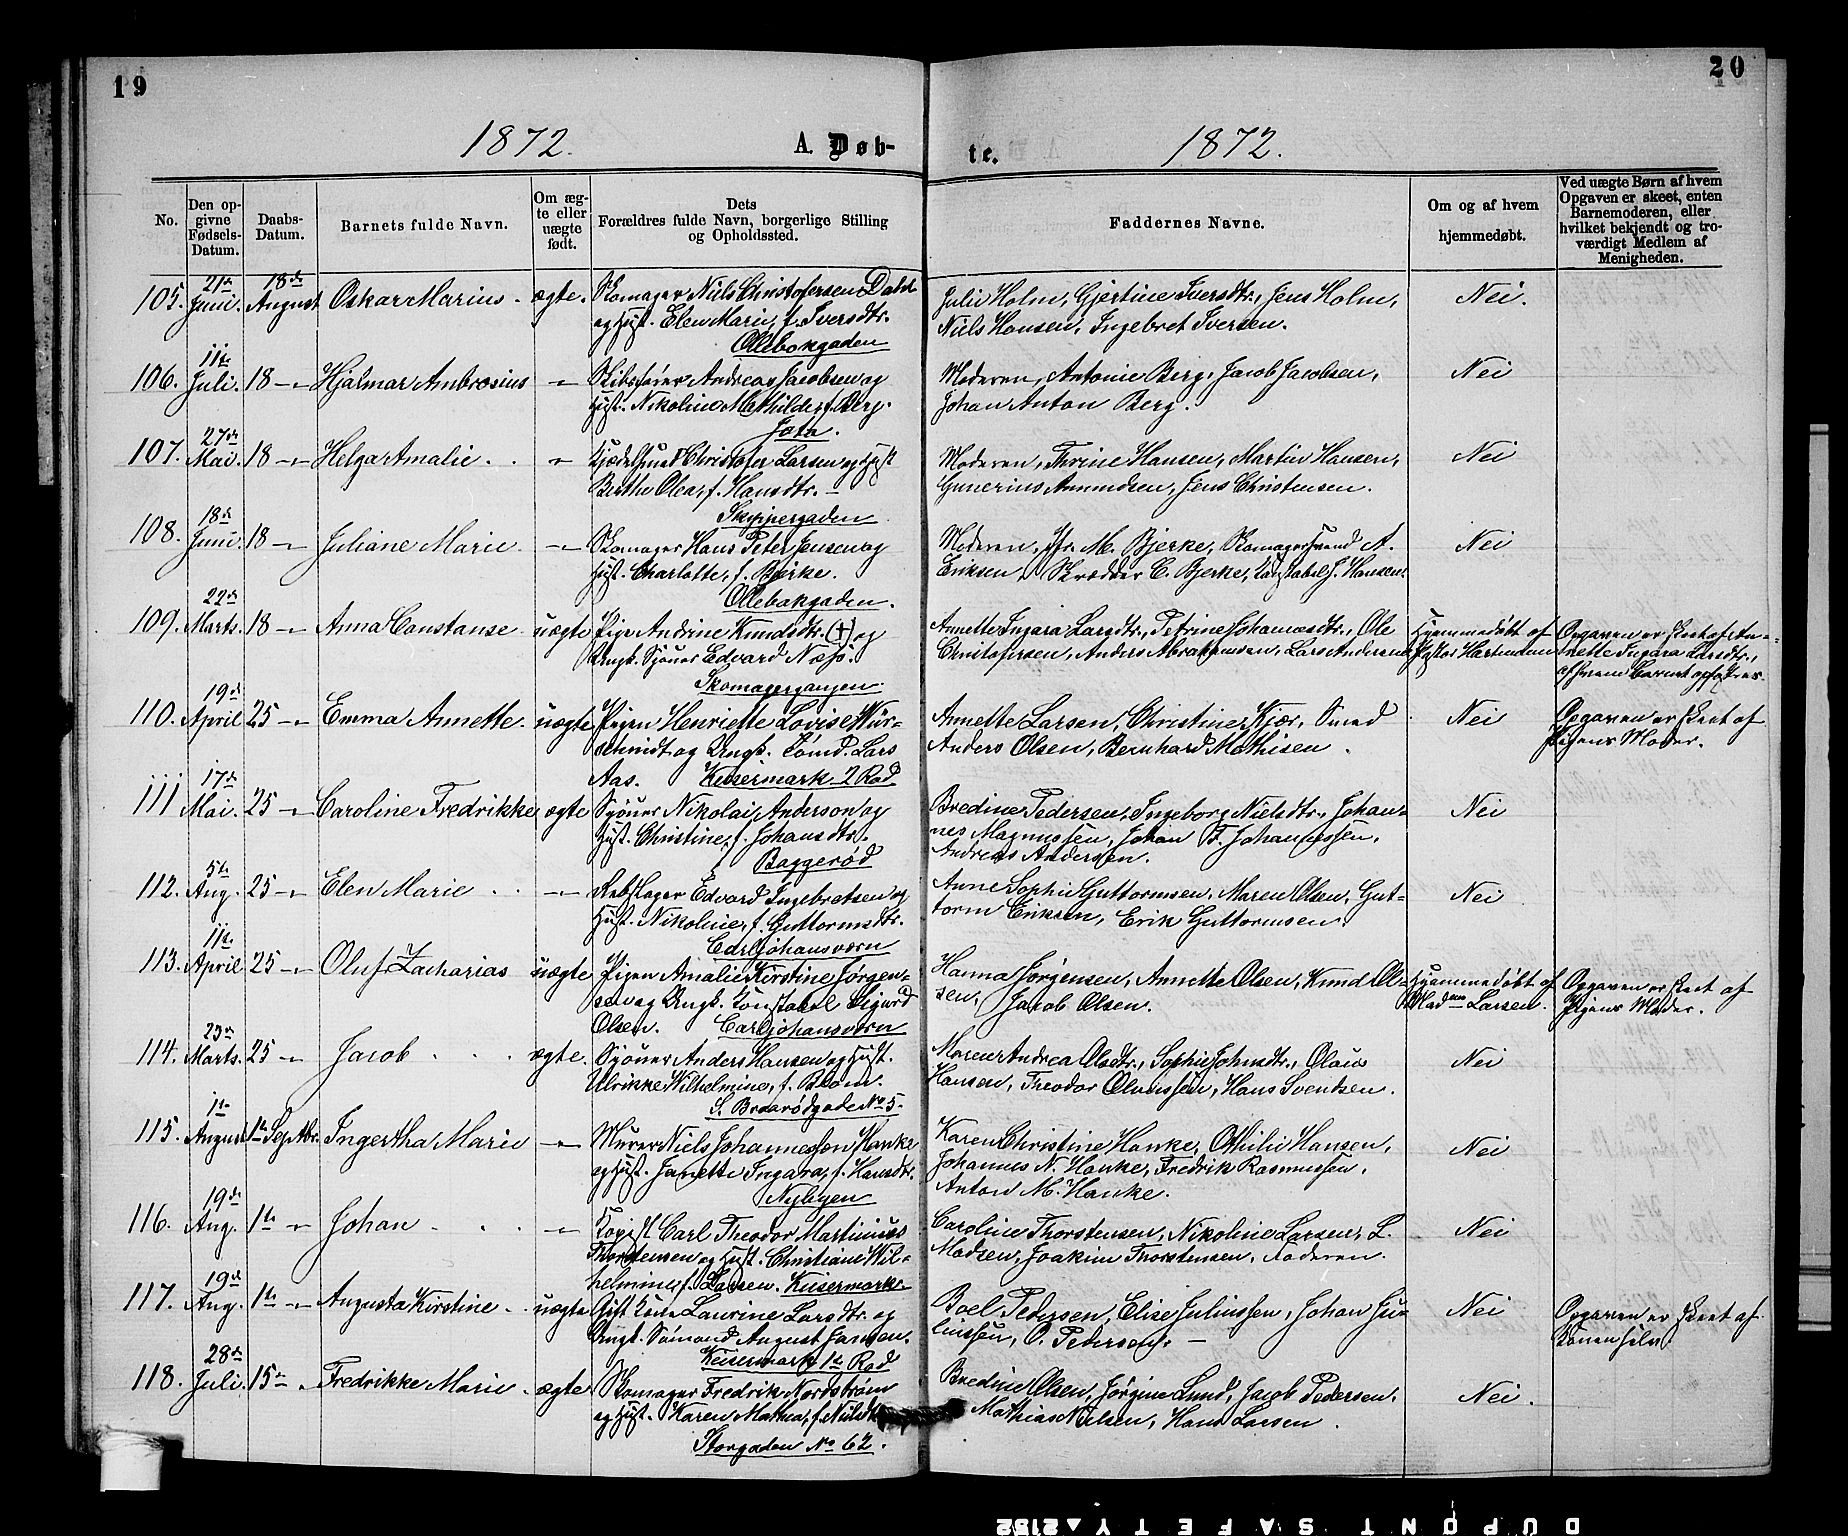 19
20
1872. A. Døb-
te. 1872.
No.
Den op-
givne
Fødsels-
Datum.
Daabs-
Datum.
Barnets fulde Navn.
Om æg-
te eller
uægte
født.
Dets
Forældres fulde Navn, borgerlige Stilling
og Opholdssted.
Faddernes Navne.
Om og af hvem
hjemmedøbt.
Ved uægte Børn af hvem
Opgaven er skeet, enten
Barnemoderen, eller
hvilket bekjendt og tro-
værdigt Medlem af
Menigheden.
105. 21de Juni. 18de August Oskar Marius. ægte. Skomager Niels Christofersen Dahl
og Hust. Elen Marie, f. Iversdtr.
Ollebakgaden
Julie Holm, Gjertine Iversdtr., Jens Holm,
Niels Hansen, Ingebret Iversen.
Nei.
106. 11te Juli. 18 -"- Hjalmar Ambrosius -"- Skibsfører Andreas Jacobsen og
Hust. Nikoline Mathilde, f. Berg.
Moderen, Antonie Berg, Jacob Jacobsen,
Johan Anton Berg.
Nei
107. 27de Mai. 18 -"- Helga Amalie. " Christofer Larsen og Hust
Berthe Olea, f. Hansdtr. -
Skippergaden
Moderen, Thrine Hansen, Martin Hansen,
Gunerius Amundsen, Jens Christensen.
Nei
108. 18de Juni. 18 -"- Juliane Marie. -"- Skomager Hans Peter Jensen og
Hust. Charlotte, f. Bjerke.
Ollebakgaden.
Moderen, Jfr. M. Bjerke, Skomagersvend A.
Eriksen, Skrædder C. Bjerke, Konstabel J. Hansen.
Nei
109. 22de Marts. 18 -"- Anna Constanse. uægte Pige Andrine Knudsdtr. (+) og
Ungk. Sjöuer Edvard Næsø.
Skomagergangen.
Annette Ingara Larsdtr., Petrine Johannesdtr., Ole
Christofersen, Anders Abrahamsen, Lars Andersen
Hjemmedöbt af
Opgaven er skeet af An-
nette Ingara Larsdtr.,
af hvem Barnet opfostres.
110. 19de April 25 -"- Emma Annette. uægte Pigen Henriette Lovise Wür-
schmidt og Ungk. Tömd. Lars
Aas. Keisermark 2 Rad
Annette Larsen, Christine Kjær, Smed
Anders Olsen, Bernhard Mathisen.
Nei
Opgaven er skeet af
Pigens Moder.
111 17de Mai. 25 -"- Caroline Fredrikke ægte Sjöuer Nikolai Anderson og
Hust. Christine, f. Johansdtr.
Baggerød
Bredine Pedersen, Ingeborg Nielsdtr., Johan-
nes Magnussen, Johan F. Johannessen,
Andreas Andersen.
Nei
112. 5te Aug. 25 -"- Elen Marie -"- Rebslager Edvard Ingebretsen og
Hust. Nikoline, f. Guttormsdtr.
Carljohansværn
Anne Sophie Guttormsen, Maren Olsen, Gut-
torm Eriksen, Erik Guttormsen.
Nei
113. 11te April 25 -"- Oluf Zacharias uægte Pigen Amalie Kirstine Jörgen-
sen og Ungk. Konstabel Sigurd
Olsen. Carljohansværn
Hanna Jørgensen, Annette Olsen, Knud Ol-
sen, Jacob Olsen.
Hjemmedöbt af
Madme Larsen.
Opgaven er skeet af
Pigens Moder.
114. 23de Marts. 25 -"- Jacob ægte. Sjöuer Anders Hansen og Hust.
Ulrikke Wilhelmine, f. Blom.
S. Braarödgade No 5.
Maren Andrea Olsdtr., Sophie Johnsdtr., Olaus
Hansen, Theodor Olaussen, Hans Svendsen.
Nei
115. 1te August 1te Septbr. Ingertha Marie -"- Murer Niels Johannesson Hanke
og Hust. Janette Ingara, f. Hansdtr.
Nybyen
Karen Christine Hanke, Othilie Hansen,
Johannes N. Hanke, Fredrik Rasmussen,
Anton M. Hanke.
Nei
116. 19de Aug. 1te " Johan -"- Kopist Carl Theodor Martinius
Thorstensen og Hust. Christiane Wil-
helmine, f. Larsen. Keisermark.
Caroline Thorstensen, Nikoline Larsen, L.
Madsen, Joakim Thorstensen, Faderen.
Nei
117. 19de Aug. 1te -"- Augusta Kirstine. uægte Gift Kone Laurine Larsdtr. og
Ungk. Sömand August Jansen.
Keisermark 1te Rad
Boel Pedersen, Elise Juliussen, Johan Ju-
liussen, O. Pedersen. -
Nei
Opgaven er skeet af
Konen selv.
118. 28de Juli. 15de -"- Fredrikke Marie. ægte Skomager Fredrik Nordström
og Hust. Karen Mathea, f. Nielsdtr.
Storgaden No 62.
Bredine Olsen, Jörgine Lund, Jacob Pedersen,
Mathias Nielsen, Hans Larsen.
Nei.
DUPONT SAFETY 2152